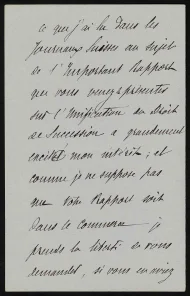 ce que j'ai lu dans les
journaux suisses au sujet
de l'Important Rapport
que vous venez
sur l'Unification du Droit
de Succession a grandement
excité mon intérêt; et
comme je ne suppose pas
que votre Rapport soit
dans le commerce je
prends la liberté de vous
demander, si vous en aviez